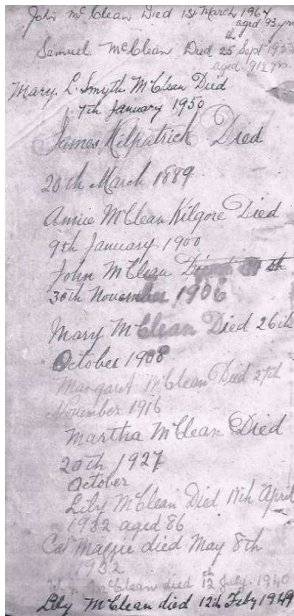 John McClean Died 1st March 1967
aged 93 yrs
Samuel McClean Died 25th Sept 1953
aged 91½ yrs
Mary L Smyth McClean Died
7th January 1950
James Kilpatrick Died
20th March 1889
Annie McClean Kilgore Died
9th January 1900
John McClean Died
30th November 1906
Mary McClean Died 26th
October 1908
Margaret McClean Died 27th
November 1916
Martha McClean Died
20th 1927
October
Lily McClean Died 18th April
1932 aged 86
Maggie died May 8th
1932
McClean died 12th July 1940
Lily McClean died 12th Feby 1949